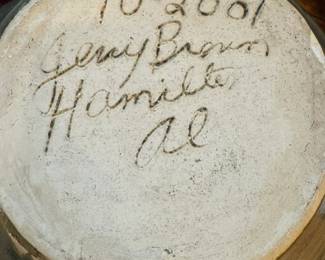 10-2001
Jerry Brown
Hamilton
Al